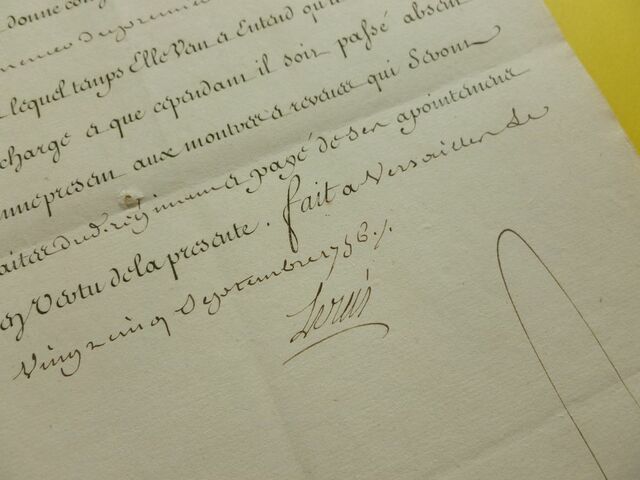 donne con
lequel temps Elle Veu a Entend qu'il
charge a que cependant il soir passé absent
present aux montres a revenes qui Seront
dud. regiment a payé de ses apointemens
en Vertu de la presente. fait a Versailles le
Vingt cinq Septembre 1756 ./.
Louis